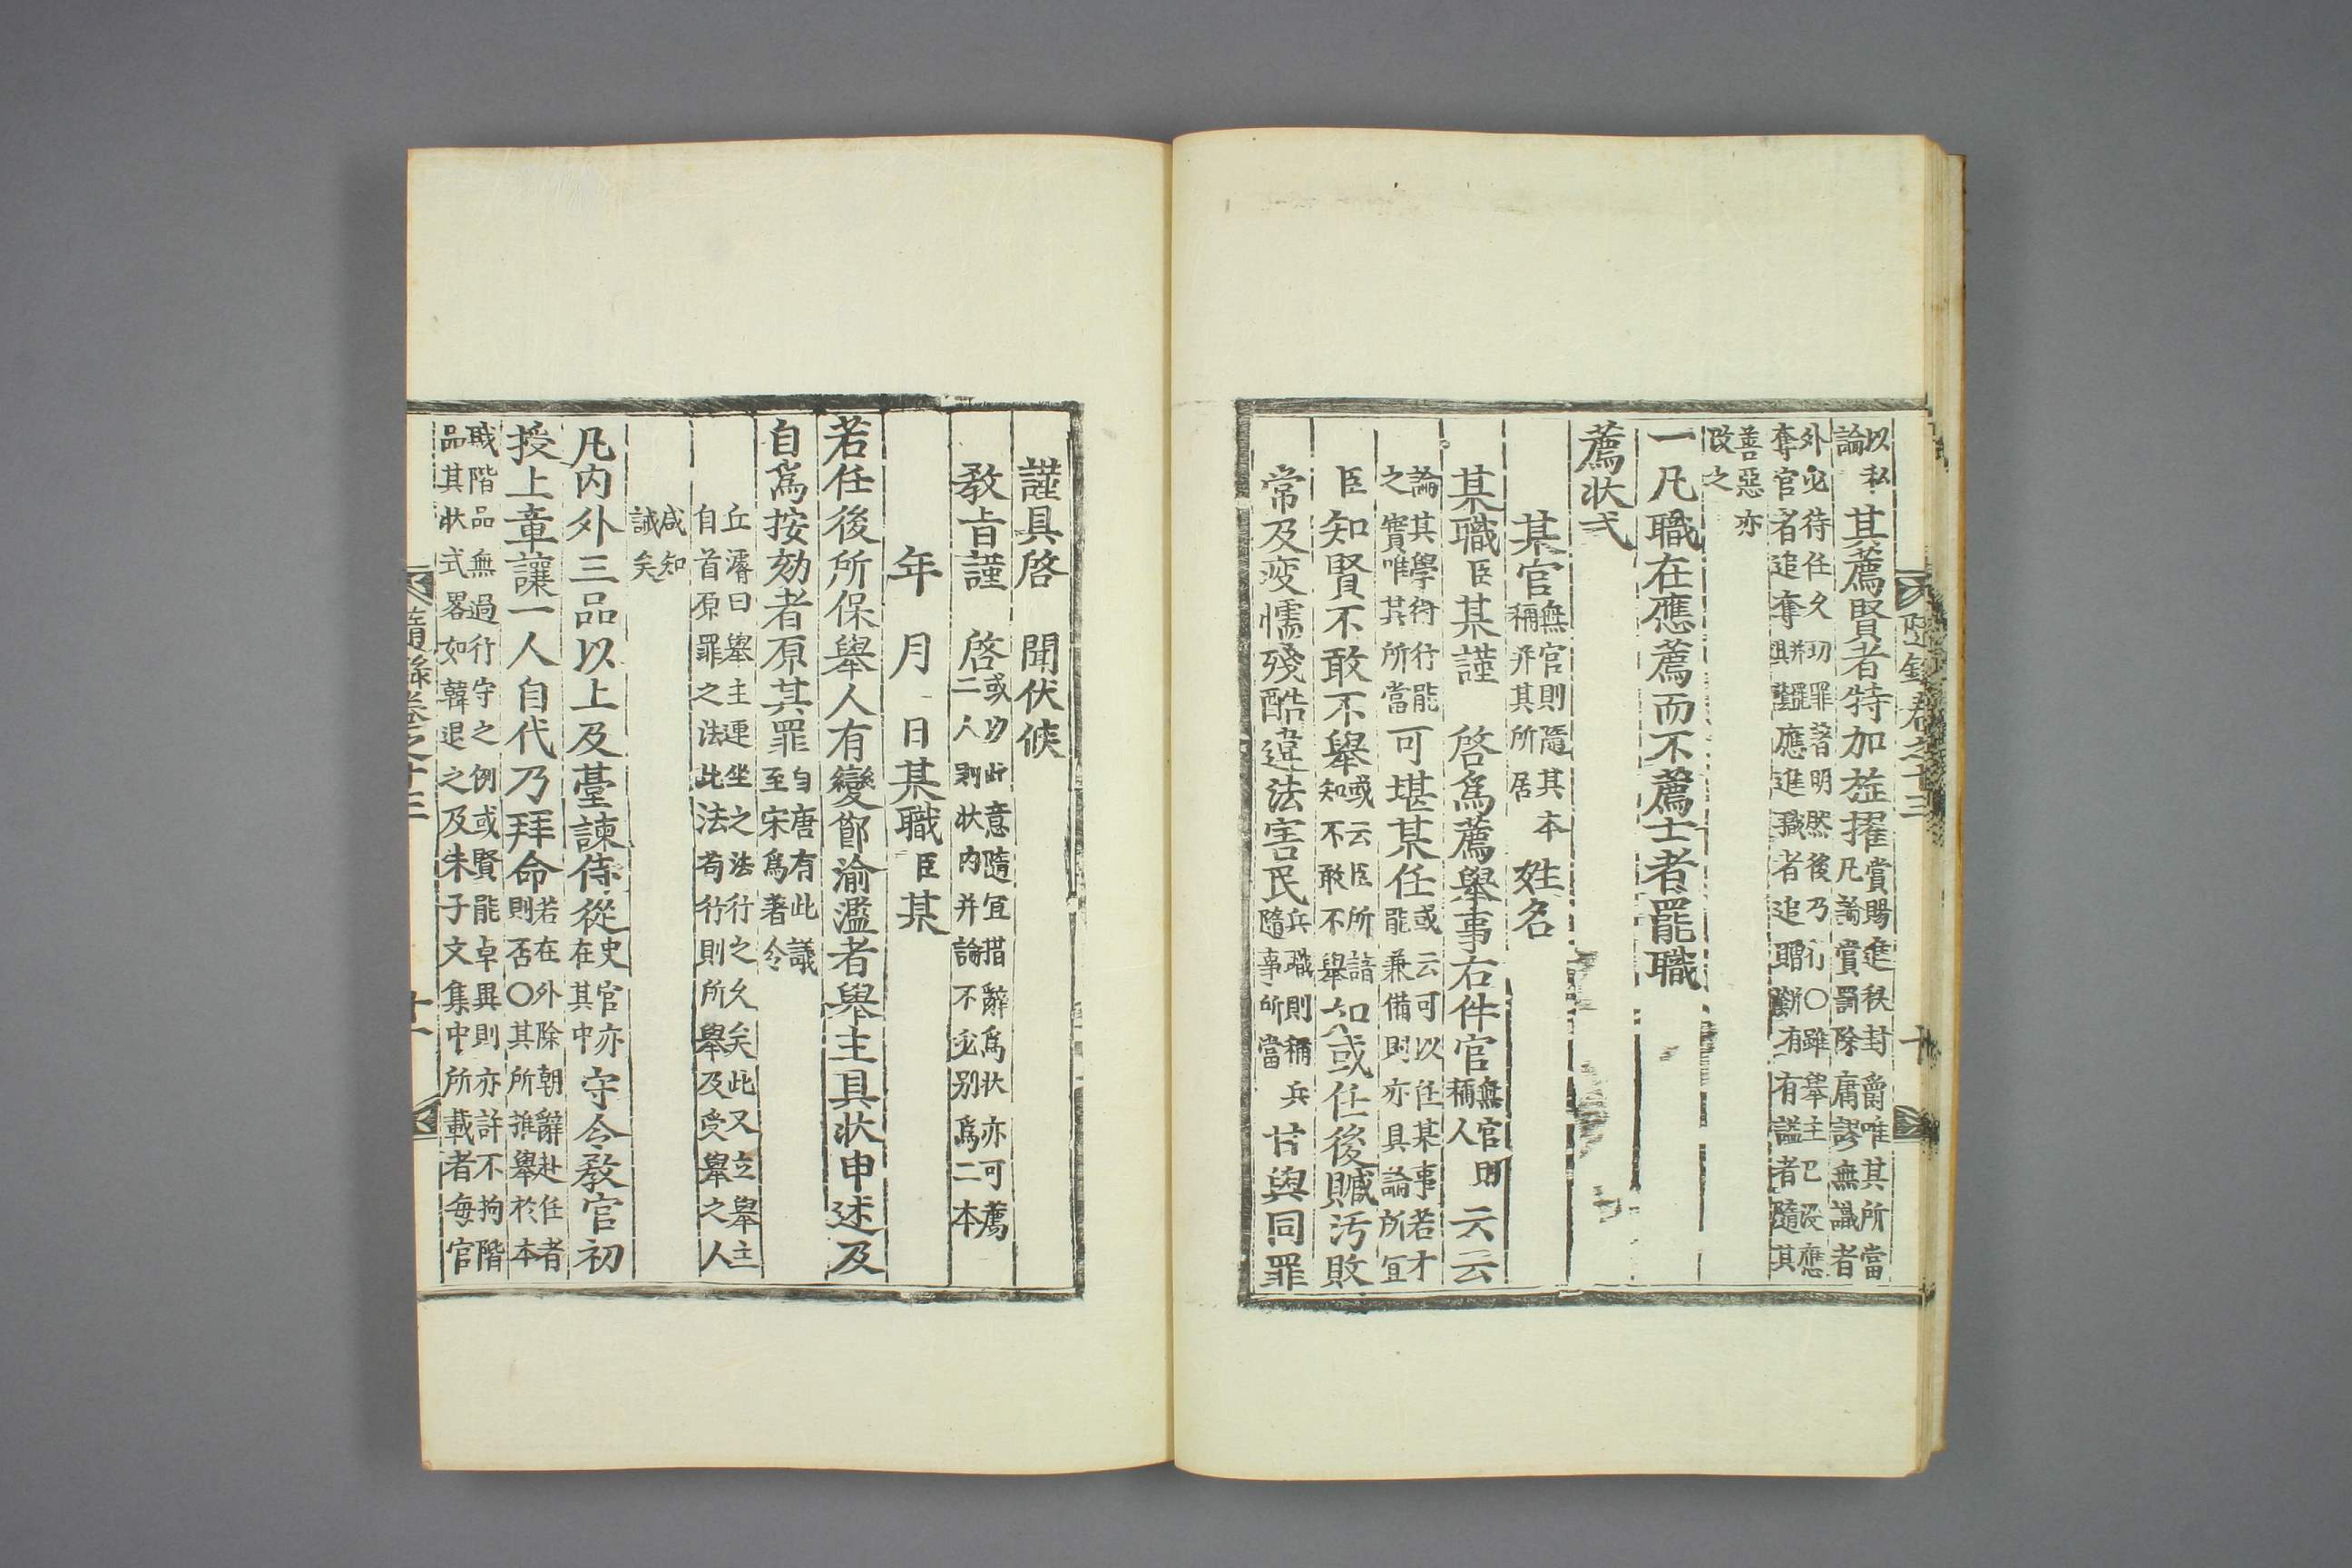 以私論其薦賢者特加㫌擢賞賜進秩封爵唯其所當凡論賞罰除庸謬無識者
外必待任久功罪著明然後乃行○雖擧主已沒應奪官者追奪應進職者追贈有謚者隨其
善惡亦改之
一凡職在應薦而不薦士者罷職
薦狀式
某官無官則隨其本稱幷其所居姓名
某職臣某謹 啓爲薦擧事右件官無官則稱人云云
論其學術行能之實唯其所當可堪某任或云可以任某事若才能兼備則亦具論所宜
臣知賢不敢不擧或云臣所諳知不敢不擧如或任後贓汚敗
常及疲懦殘酷違法害民兵職則稱兵隨事所當甘與同罪
隨錄卷之十三
十
謹具啓 聞伏候
敎旨謹 啓或功此意隨宜措辭爲狀亦可薦二人則狀內幷論不必別爲二本
年 月 日某職臣某
若任後所保擧人有變節渝濫者擧主具狀申述及
自爲按劾者原其罪自唐有此議至宋爲著令
丘濬曰擧主連坐之法行之久矣此又立擧主自首原罪之法此法苟行則所擧及受擧之人
咸知誡矣
凡內外三品以上及臺諫侍從史官亦在其中守令敎官初
授上章讓一人自代乃拜命若在外除朝辭赴任者則否○其所推擧於本
職階品無過行守之例或賢能卓異則亦許不拘階品其狀式畧如韓退之及朱子文集中所載者每官
隨錄卷之十三
十一